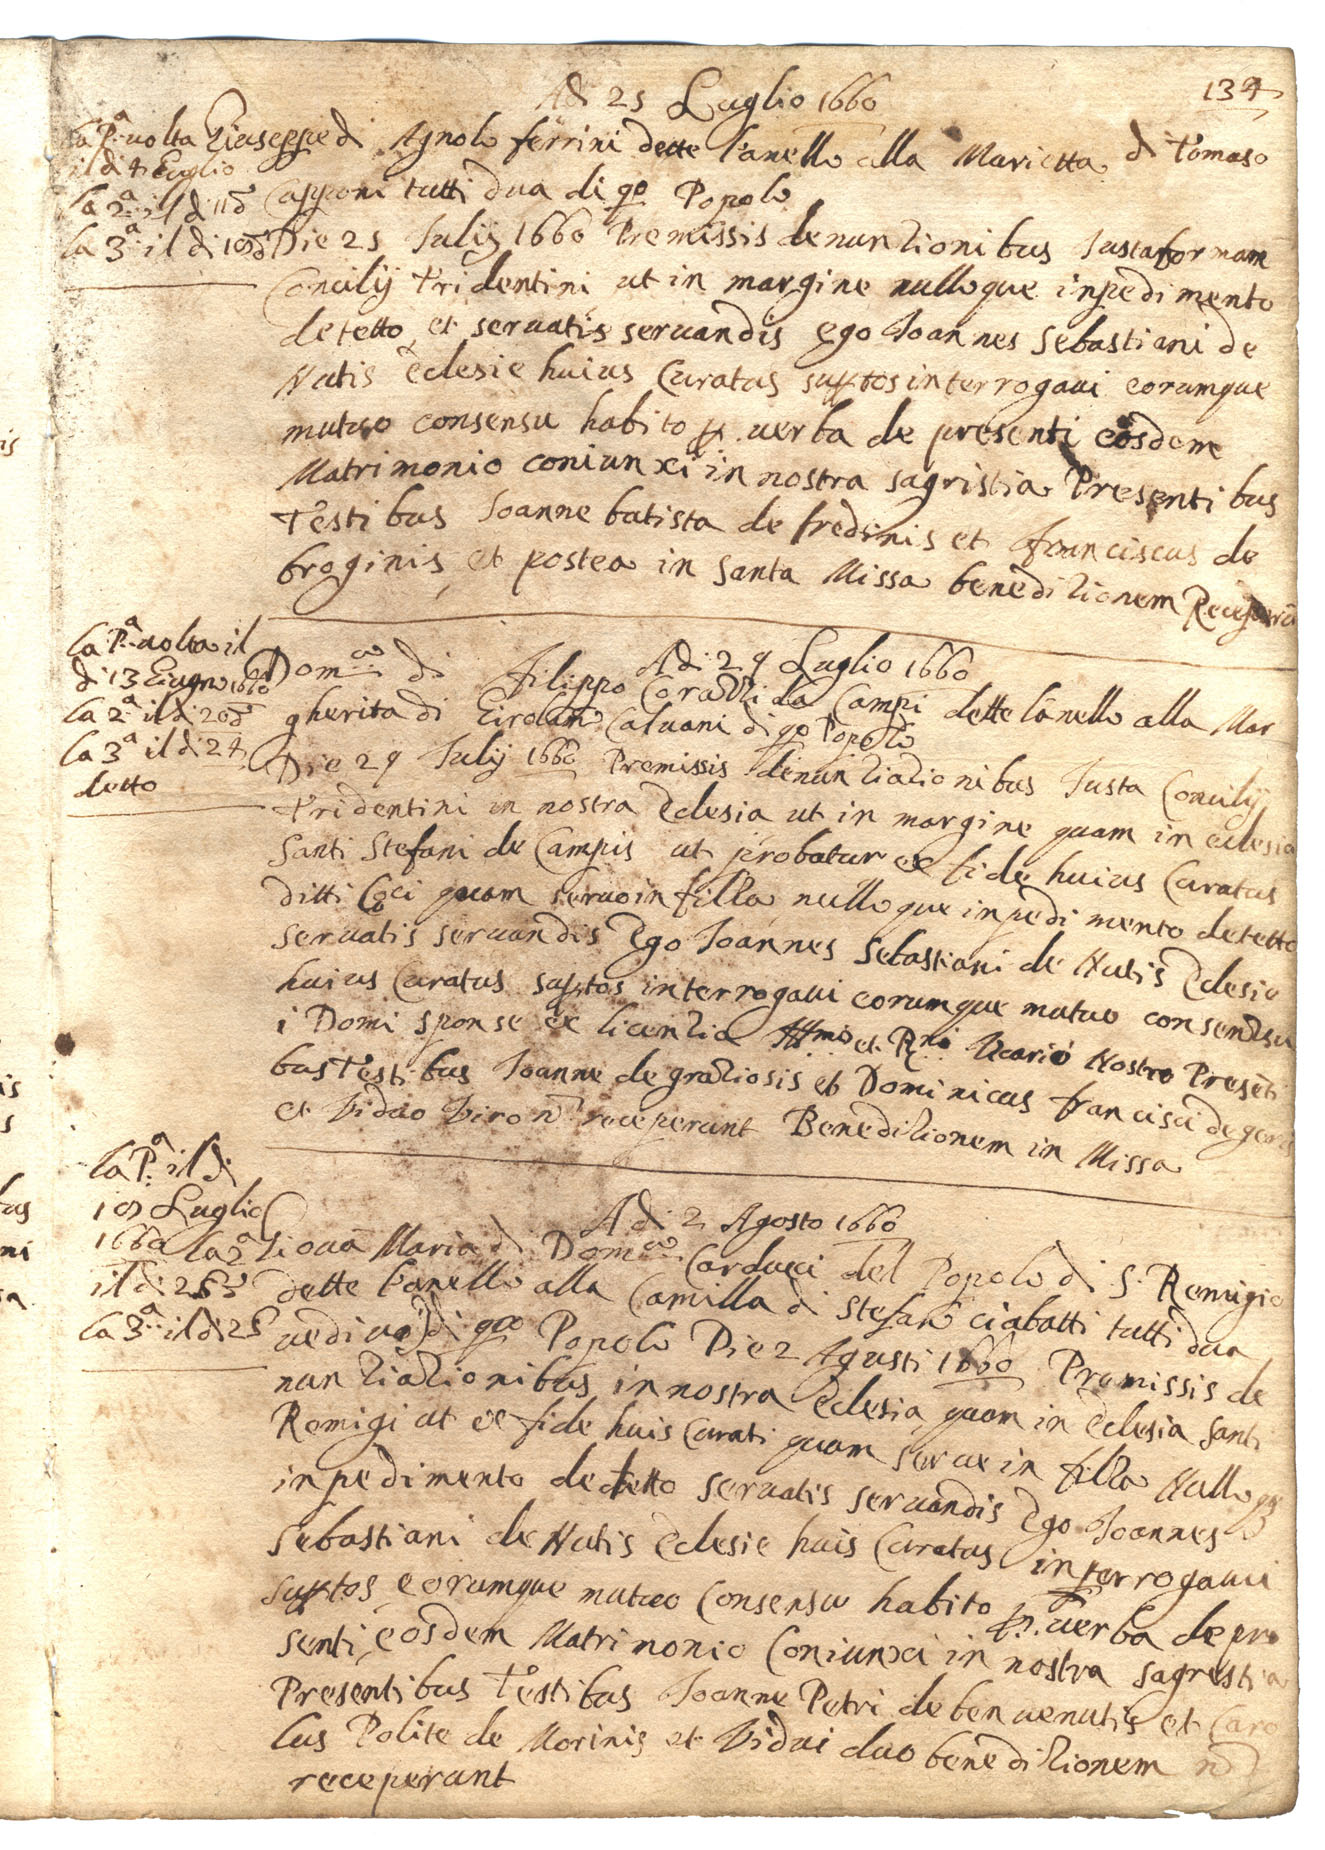 134
Adi 25 Luglio 1660
la P.ª uolta
il di 4 Luglio
la 2.ª il di 11 dº
la 3.ª il di 18 dº
Giuseppe di Agnolo ferrini dette l'anello alla Marietta di Tomaso
Capponi tutti dua di qº Popolo
Die 25 Julij 1660 Premissis denuntionibus Justa formam
Concilij Tridentini ut in margine nulloque inpedimento
detetto et seruatis seruandis ego Joannes Sebastiani de
Natis Eclesie huius Curatus supptos interrogaui eorumque
mutuo consensu habito p. uerba de presenti eosdem
Matrimonio coniunxi in nostra sagristia Presentibus
Testibus Joanne batista de fredinis et franciscus de
broginis et postea in Santa Missa beneditionem
la P.ª uolta il
di 13 Giugno 1660
la 2.ª il di 20 dº
la 3.ª il di 24
detto
Adi 29 Luglio 1660
Dom.co di filippo Corazzi da Campi dette l'anello alla Mar
gherita di Girolamº Caluani di qº Popolo
Die 29 Julij 1660 Premissis denuntiationibus Justa Concilij
Tridentini in nostra Eclesia ut in margine quam in eclesia
Santi Stefani de Campis ut probatur ex fide huius Curatus
ditti loci quam seruo in filla nulloque inpedimento detetto
seruatis seruandis Ego Joannes Sebastiani de Natis Eclesie
huius Curatus supptos interrogaui eorumque mutuo consensu
i Domi sponse ex licentia et R.mi Vicario Nostro Presenti
bus Testibus Joanne de gratiosis et Dominicus francisci de
et Viduo Viro nº receperunt Beneditionem in Missa
la P.ª il di
18 Luglio
1660 la 2.ª
il di 25 dº
la 3.ª il di 25
Adi 2 Agosto 1660
Gioua Maria di Dom.co Carducci del Popolo di S. Remigio
dette lanello alla Camilla di Stefanº ciabatti tutti dua
uedivi di qº Popolo Die 2 Agusti 1660 Premissis de
nuntiationibus in nostra Eclesia quam in Eclesia Santi
Remigi ut ex fide huis Curati quam serue in filla Nulloque
inpedimento dedetto seruatis seruandis Ego Joannes
Sebastiani de Natis Eclesie huis Curatus interrogaui
supptos eorumque mutuo Consensu habito p. uerba de pre
senti, eosdem Matrimonio Coniunxi in nostra sagrestia
Presentibus Testibus Joanne Petri de benuenutis et Caro
lus Polite de Morinis et Vidui duo beneditionem nº
receperunt